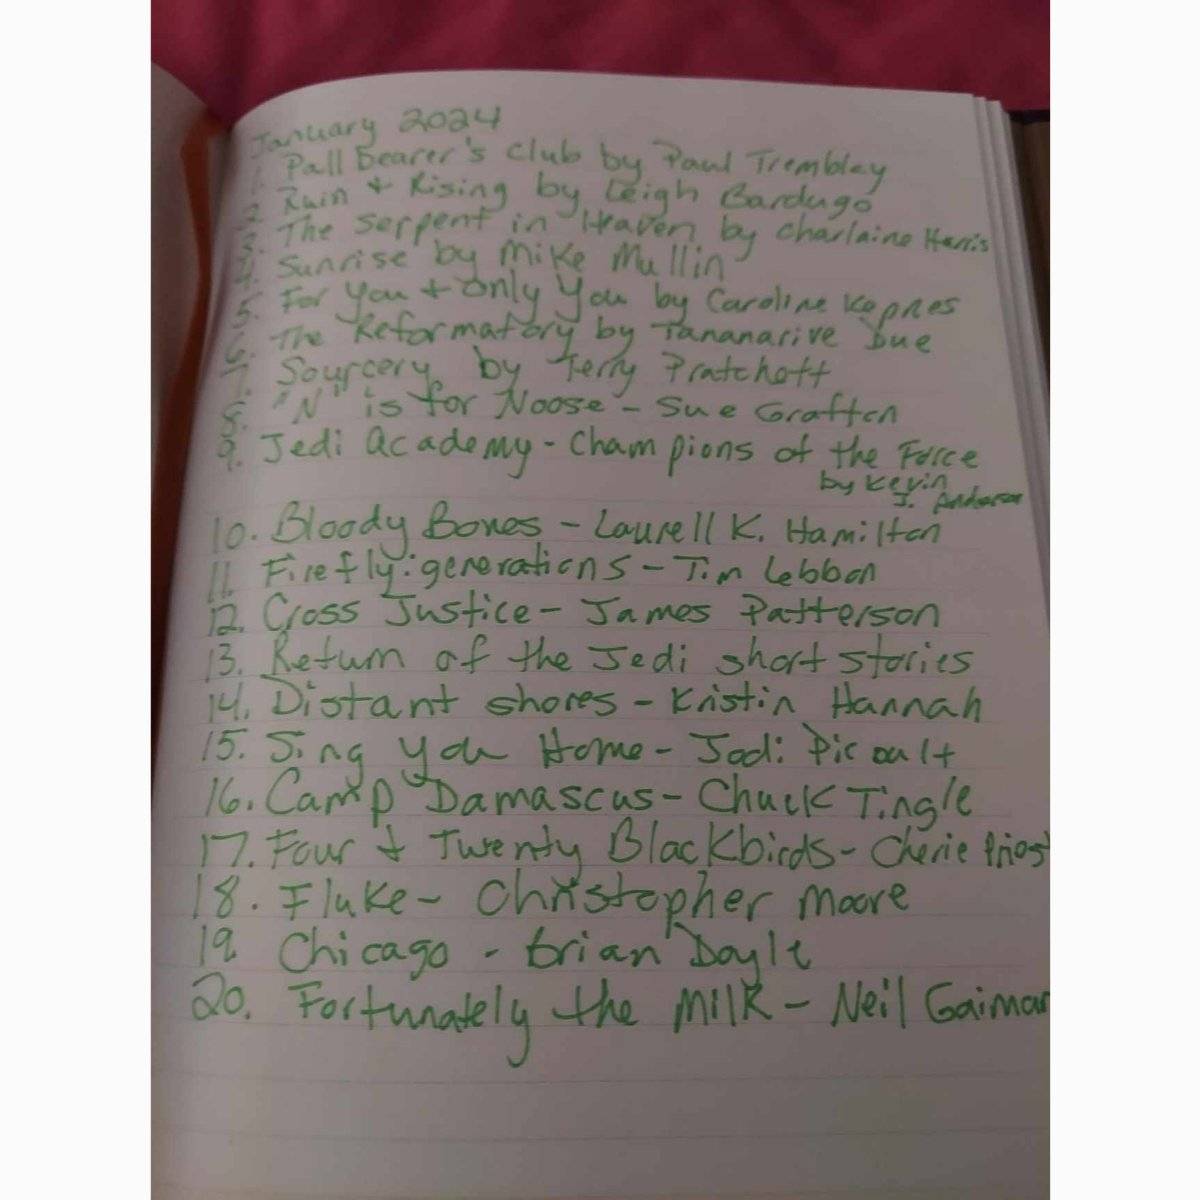 January 2024
1. Pall Bearer's Club by Paul Tremblay
2. Ruin + Rising by Leigh Bardugo
3. The Serpent in Heaven by Charlaine Harris
4. Sunrise by Mike Mullin
5. For You + Only You by Caroline Kepnes
6. The Reformatory by Tananarive Due
7. Sourcery by Terry Pratchett
8. "N" is for Noose - Sue Grafton
9. Jedi Academy - Champions of the Force
by Kevin
J. Anderson
10. Bloody Bones - Laurell K. Hamilton
11. Firefly: generations - Tim Lebbon
12. Cross Justice - James Patterson
13. Return of the Jedi short stories
14. Distant shores - Kristin Hannah
15. Sing you Home - Jodi Picoult
16. Camp Damascus - Chuck Tingle
17. Four + Twenty Blackbirds - Cherie Priest
18. Fluke - Christopher Moore
19. Chicago - Brian Doyle
20. Fortunately the Milk - Neil Gaiman